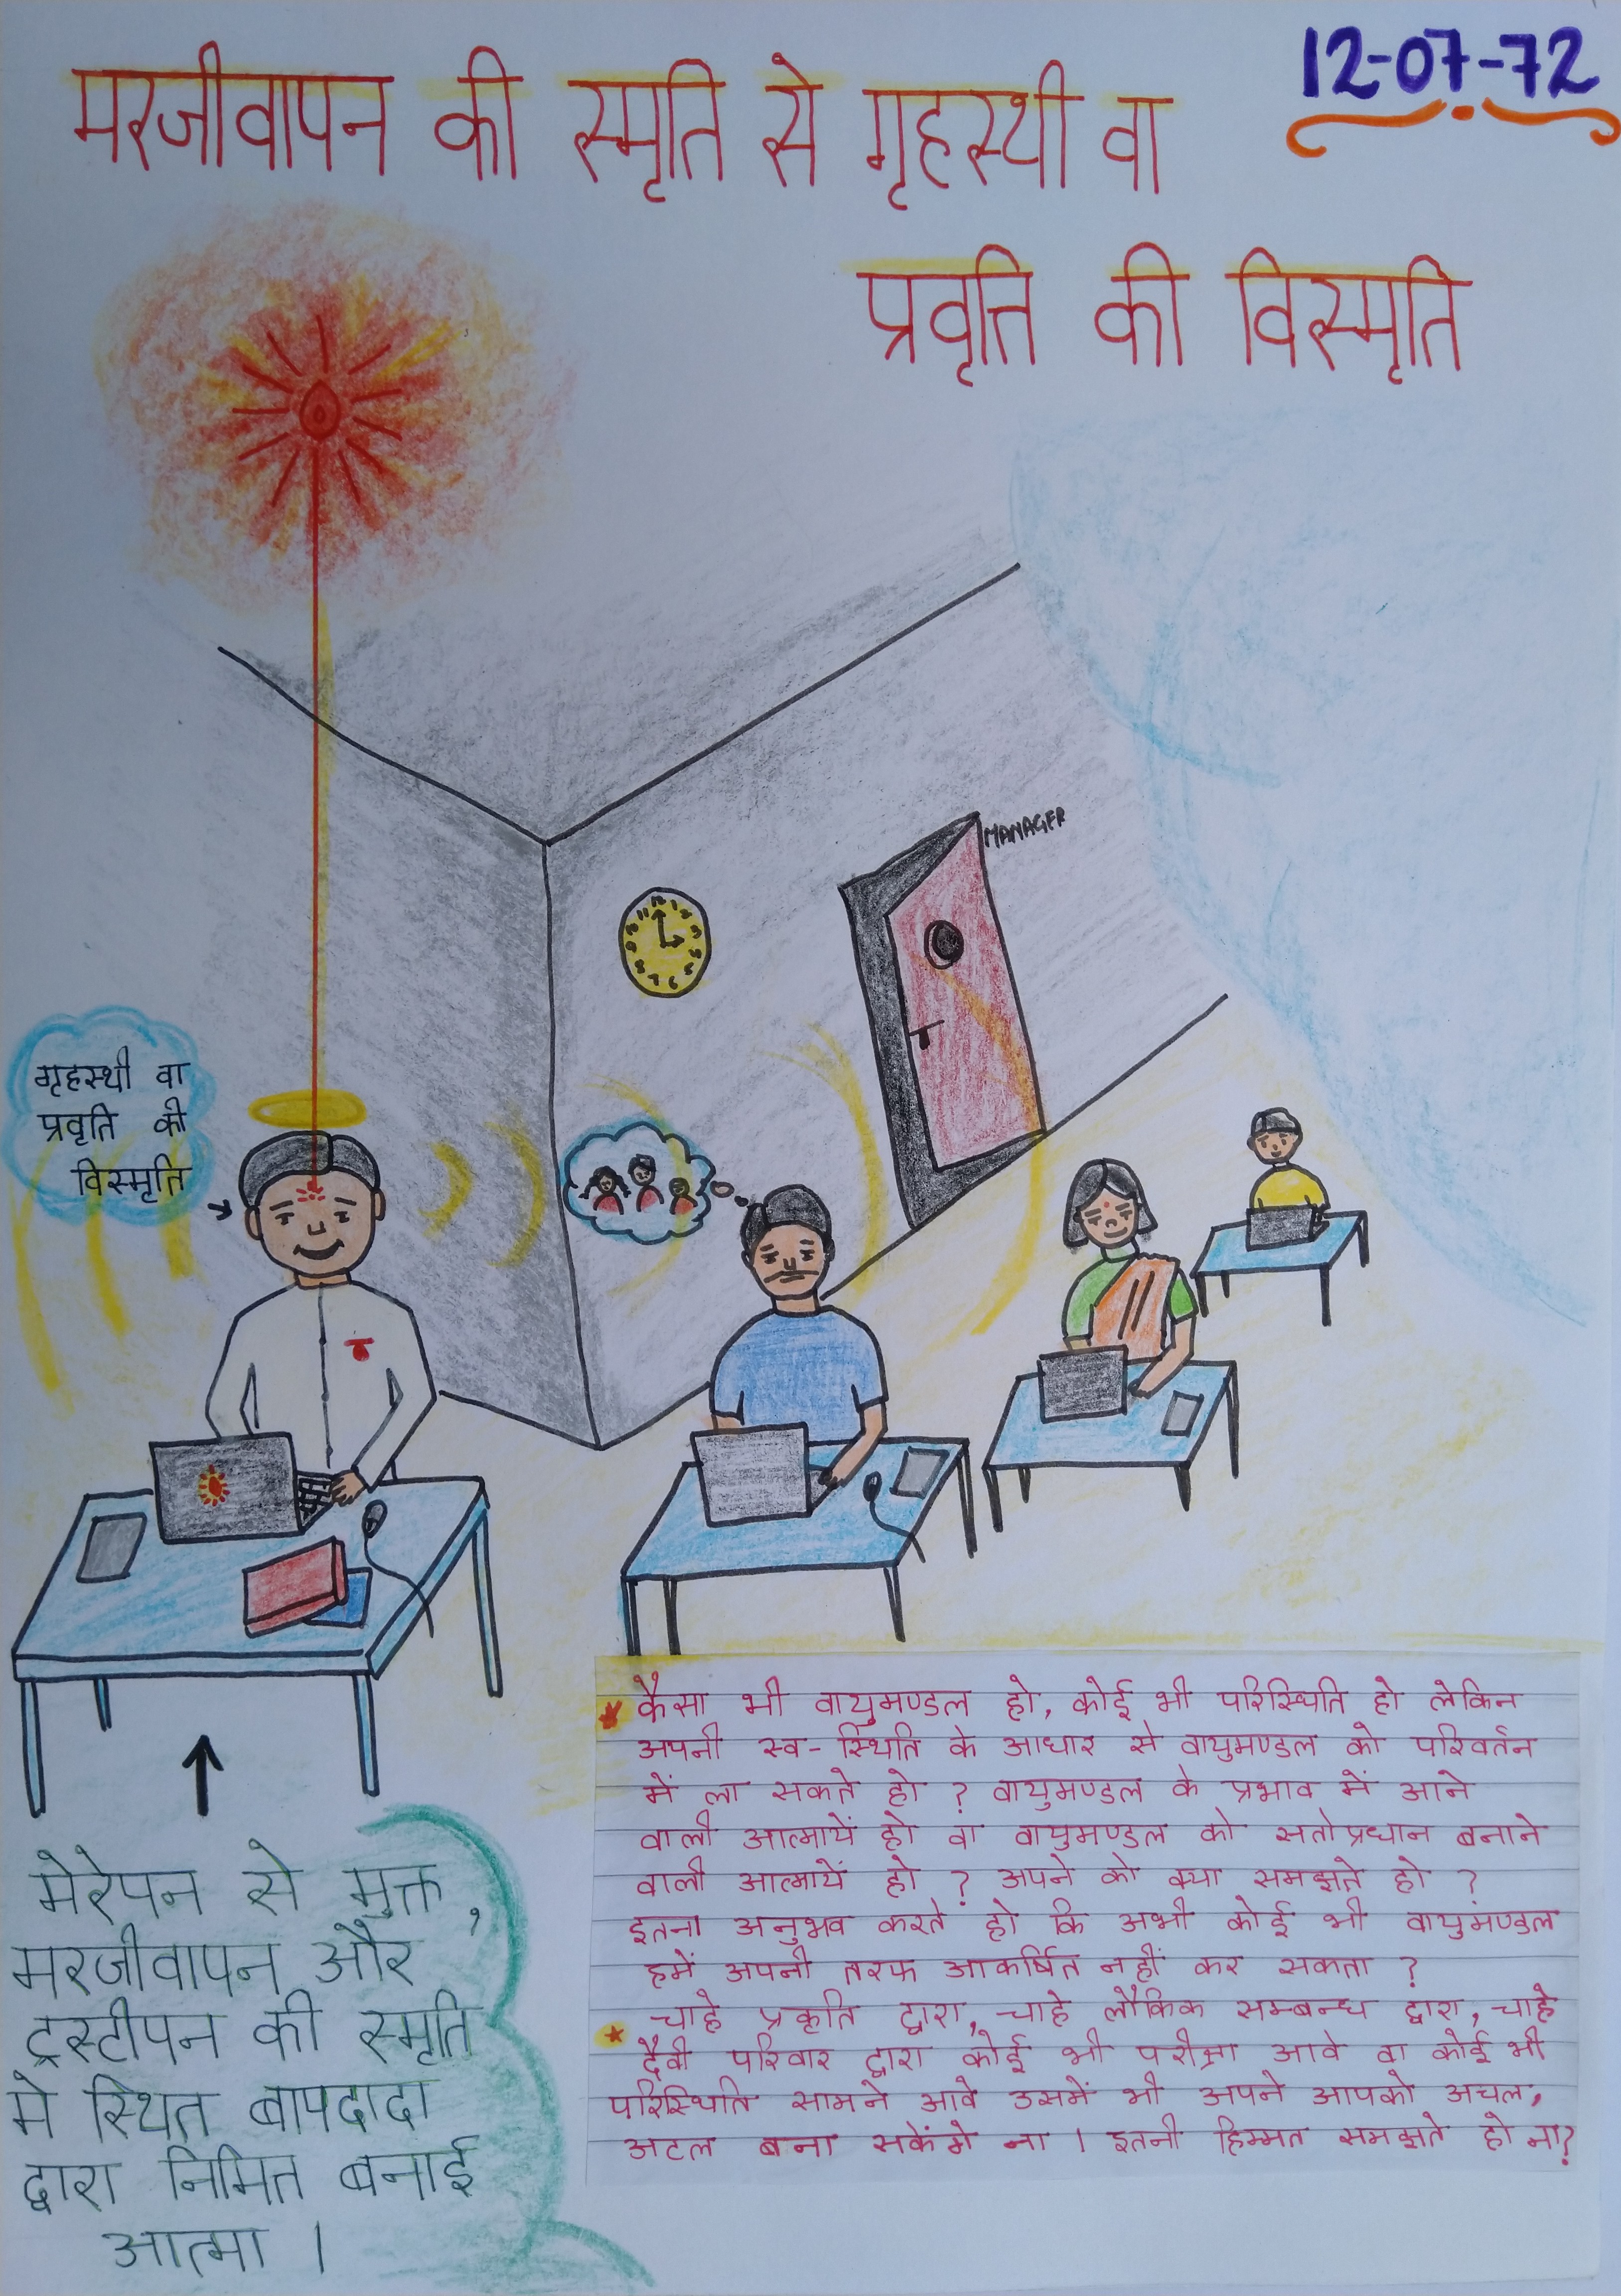 12-07-72
मरजीवापन की स्मृति से गृहस्थी वा
प्रवृत्ति की विस्मृति
MANAGER
12
गृहस्थी वा
प्रवृति की
विस्मृति
कैसा भी वायुमण्डल हो, कोई भी परिस्थिति हो लेकिन
अपनी स्व-स्थिति के आधार से वायुमण्डल को परिवर्तन
में ला सकते हो ? वायुमण्डल के प्रभाव में आने
वाली आत्मायें हो वा वायुमण्डल को सतोप्रधान बनाने
वाली आत्मायें हो ? अपने को क्या समझते हो ?
इतना अनुभव करते हो कि अभी कोई भी वायुमण्डल
हमें अपनी तरफ आकर्षित नहीं कर सकता ?
चाहे प्रकृति द्वारा, चाहे लौकिक सम्बन्ध द्वारा, चाहे
दैवी परिवार द्वारा कोई भी परीक्षा आवे वा कोई भी
परिस्थिति सामने आवे उसमें भी अपने आपको अचल,
अटल बना सकेंगे ना । इतनी हिम्मत समझते हो ना?
मेरेपन से मुक्त,
मरजीवापन और
ट्रस्टीपन की स्मृति
मे स्थित बापदादा
द्वारा निमित बनाई
आत्मा ।